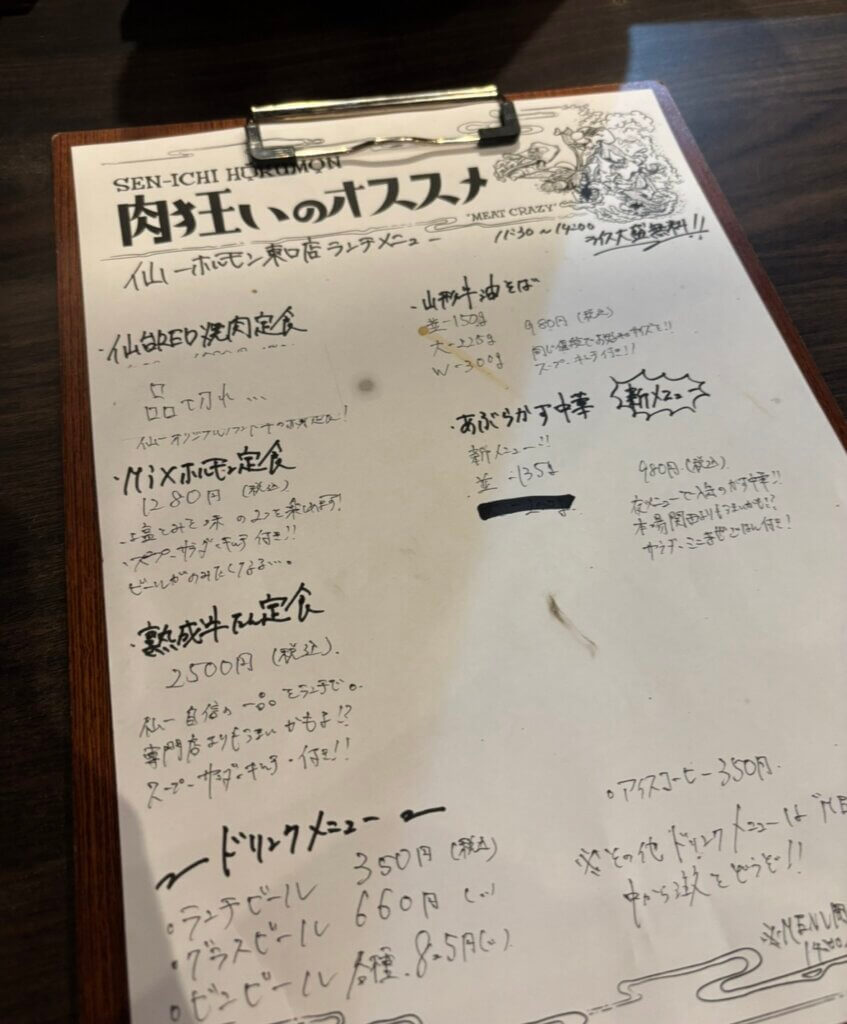 SEN-ICHI HORUMON
肉狂いのオススメ
"MEAT CRAZY"
仙一ホルモン東口店ランチメニュー
11:30~14:00
ライス大盛無料!!
・仙台RED焼肉定食
品切れ…
・Mixホルモン定食
1280円(税込)
・塩とみそ味の2つを楽しめます!
・スープ・サラダ・キムチ付き!!
ビールがのみたくなる…。
・熟成牛たん定食
2500円(税込)
仙一自信の一品をランチで。
専門店よりもうまいかもよ!?
スープ・サラダ・キムチ・付き!!
・山形牛油そば
並-150g 980円(税込)
大-225g 同じ値段でお好みのサイズを!!
W-300g スープ・キムチ付き!!
・あぶらかす中華 新メニュー
新メニュー!!
並-135g 980円(税込)
夜メニューで人気のかす中華!!
本場関西よりもうまいかも!?
サラダ・ミニまぜごはん付き!
~ドリンクメニュー~
・ランチビール 350円(税込)
・グラスビール 660円(〃)
・ビンビール各種
・アイスコーヒー350円
※その他ドリンクメニューは"ME
中から注文どうぞ!!
※MENU
14:00